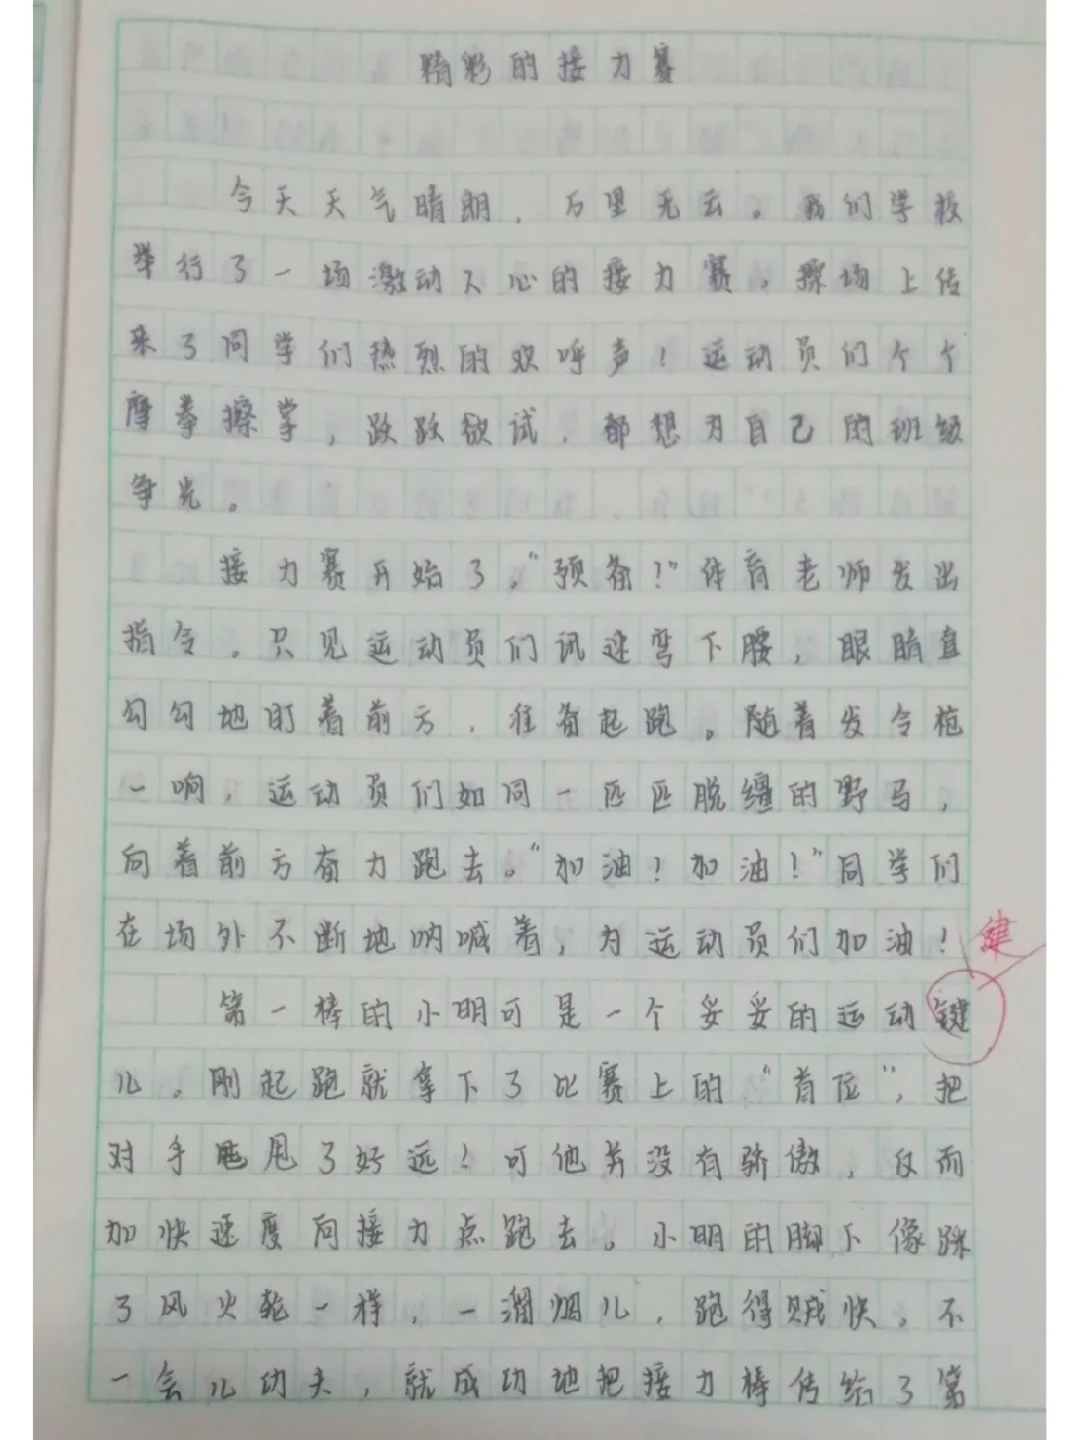 精彩的接力赛
今天天气晴朗，万里无云。我们学校
举行了一场激动人心的接力赛，操场上传
来了同学们热烈的欢呼声！运动员们个个
摩拳擦掌，跃跃欲试，都想为自己的班级
争光。
接力赛开始了。“预备！”体育老师发出
指令。只见运动员们讯速弯下腰，眼睛直
勾勾地盯着前方，准备起跑。随着发令枪
一响，运动员们如同一匹匹脱缰的野马，
向着前方奋力跑去。“加油！加油！”同学们
在场外不断地呐喊着，为运动员们加油！
健
第一棒的小明可是一个妥妥的运动键
儿。刚起跑就拿下了比赛上的“首位”，把
对手甩甩了好远！可他并没有骄傲，反而
加快速度向接力点跑去。小明的脚下像踩
了风火轮一样，一溜烟儿，跑得贼快。不
一会儿功夫，就成功地把接力棒传给了第